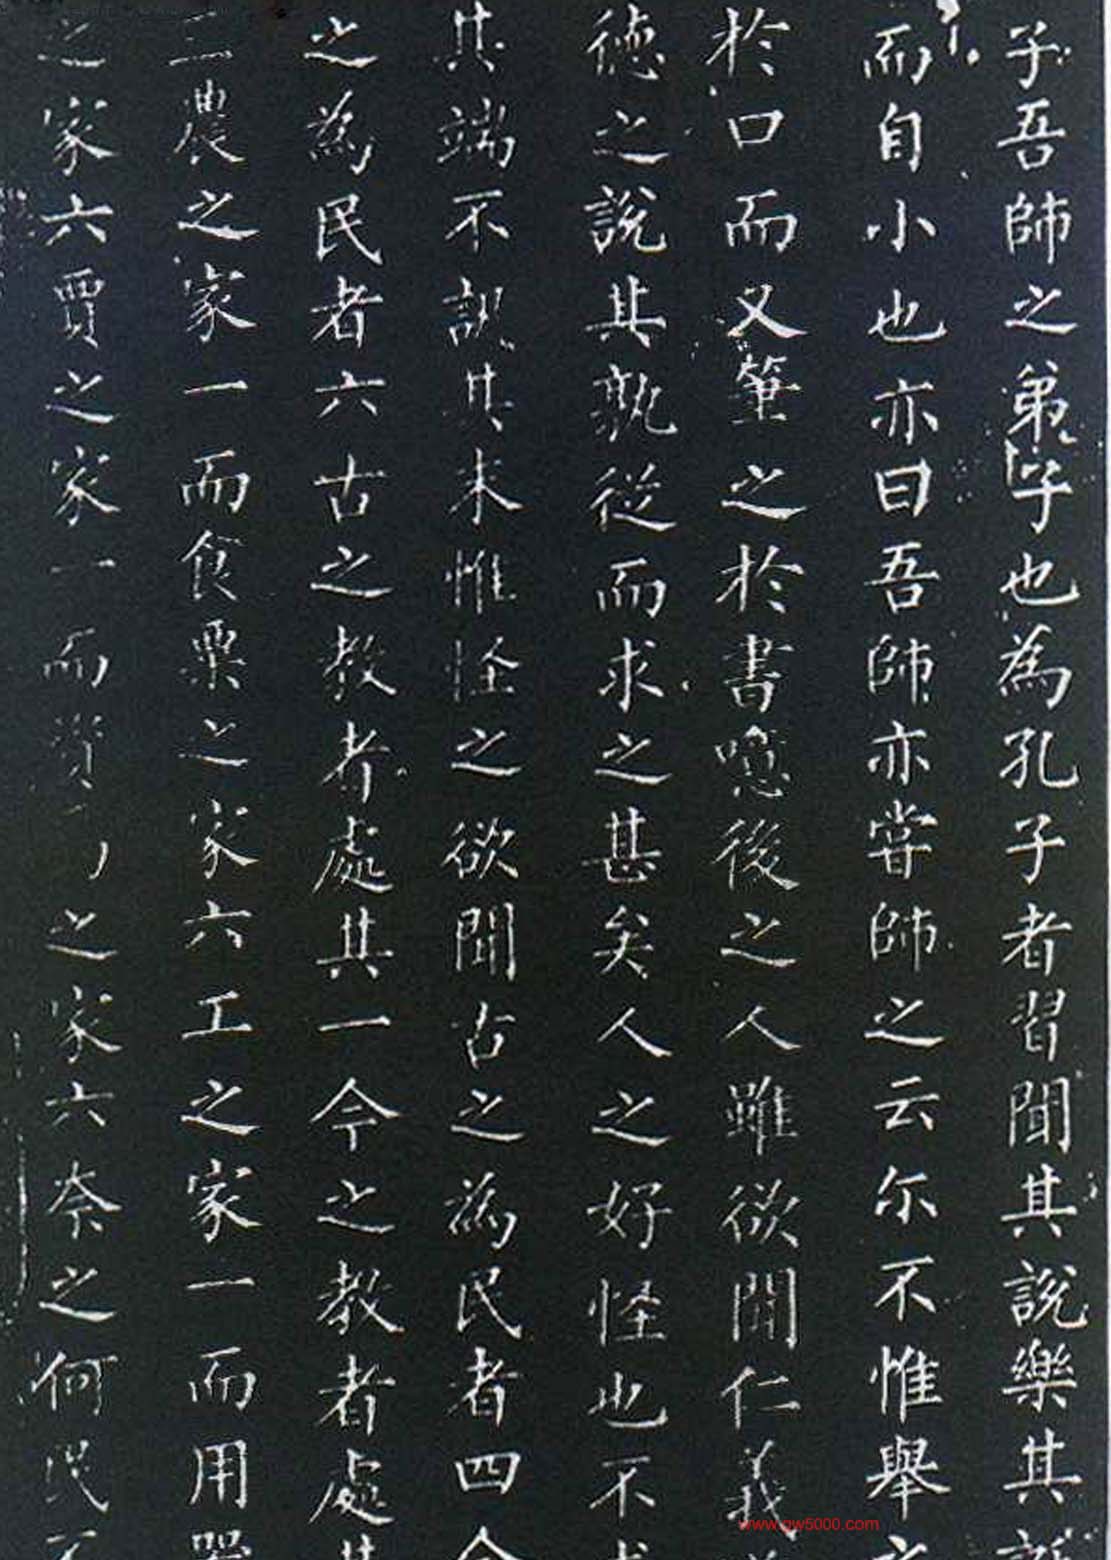 子吾師之弟子也為孔子者習聞其說樂其
而自小也亦曰吾師亦嘗師之云尓不惟舉之
於口而又筆之於書噫後之人雖欲聞仁義
德之說其孰從而求之甚矣人之好怪也不求
其端不訊其末惟怪之欲聞古之為民者四今
之為民者六古之教者處其一今之教者處其
三農之家一而食粟之家六工之家一而用器
之家六賈之家一而資之家六奈之何民不
www.gw5000.com